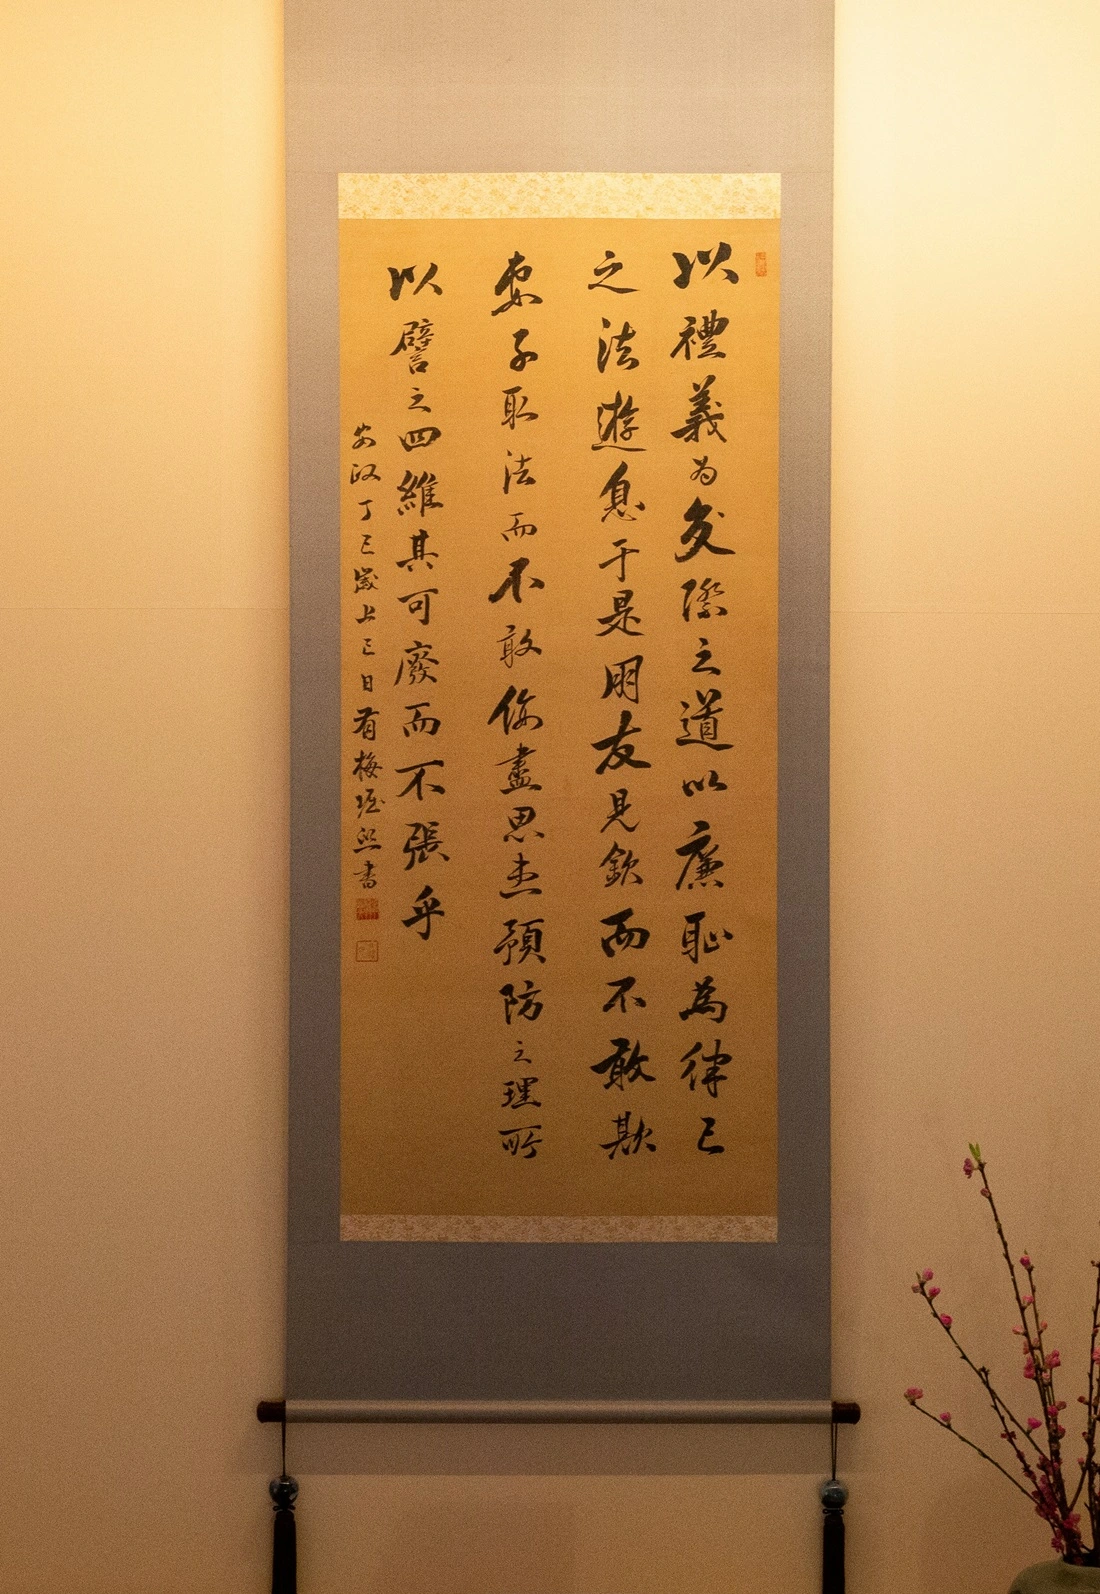 以禮義為交際之道以廉恥為律己
之法遊息于是朋友見欽而不敢欺
妻子取法而不敢侮盡思患預防之理所
以譬之四維其可廢而不張乎
安政丁巳歲上巳日有梅堀熙書